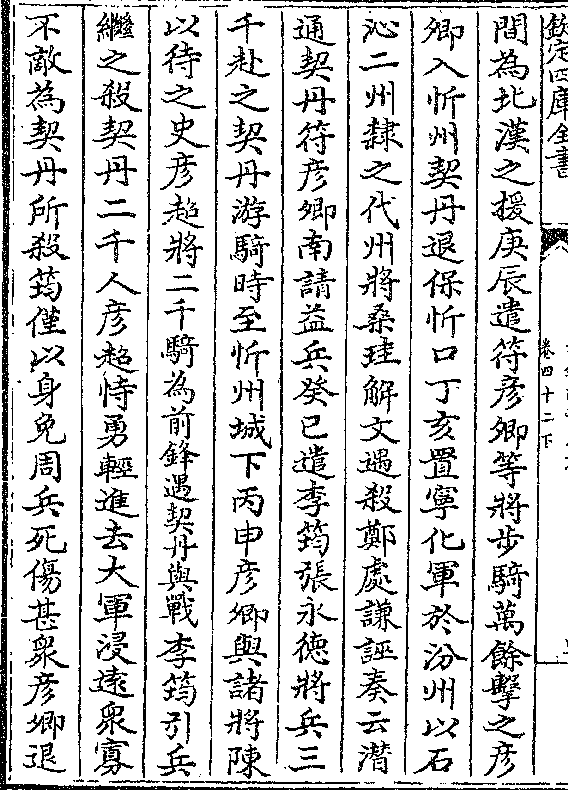 欽定四庫全書
卷四十二下
間為北漢之援庚辰遣符彦卿等將步騎萬餘擊之彦
卿入忻州契丹退保忻口丁亥置寧化軍於汾州以石
沁二州隸之代州將桑珪解文遇殺鄭處謙誣奏云潜
通契丹符彦卿南請益兵癸巳遣李筠張永德將兵三
千赴之契丹游騎時至忻州城下丙申彦卿與諸將陳
以待之史彦超將二千騎為前鋒遇契丹與戰李筠引兵
繼之殺契丹二千人彦超恃勇輕進去大軍浸遠衆寡
不敵為契丹所殺筠僅以身免周兵死傷甚衆彦卿退